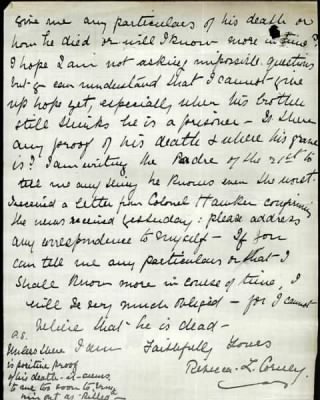 Give me any particulars of his death or
how he died or will I know more in time?
I hope I am not asking impossible questions
but you can understand that I cannot give
up hope yet, especially when his brother
still thinks he is a prisoner - Is there
any proof of his death & where his grave
is? I am writing the Padre of the 21st to
tell me any thing he knows even the worst.
I received a letter from Colonel Hawker confirming
the news received yesterday: please address
any correspondence to myself - If you
can tell me any particulars or that I
shall know more in course of time, I
will be very much obliged - for I cannot
believe that he is dead -
Faithfully Yours
Rebecca L.
P.S.
Unless there I am
is positive proof
of his death - it seems
to me too soon to bring
him out as killed -